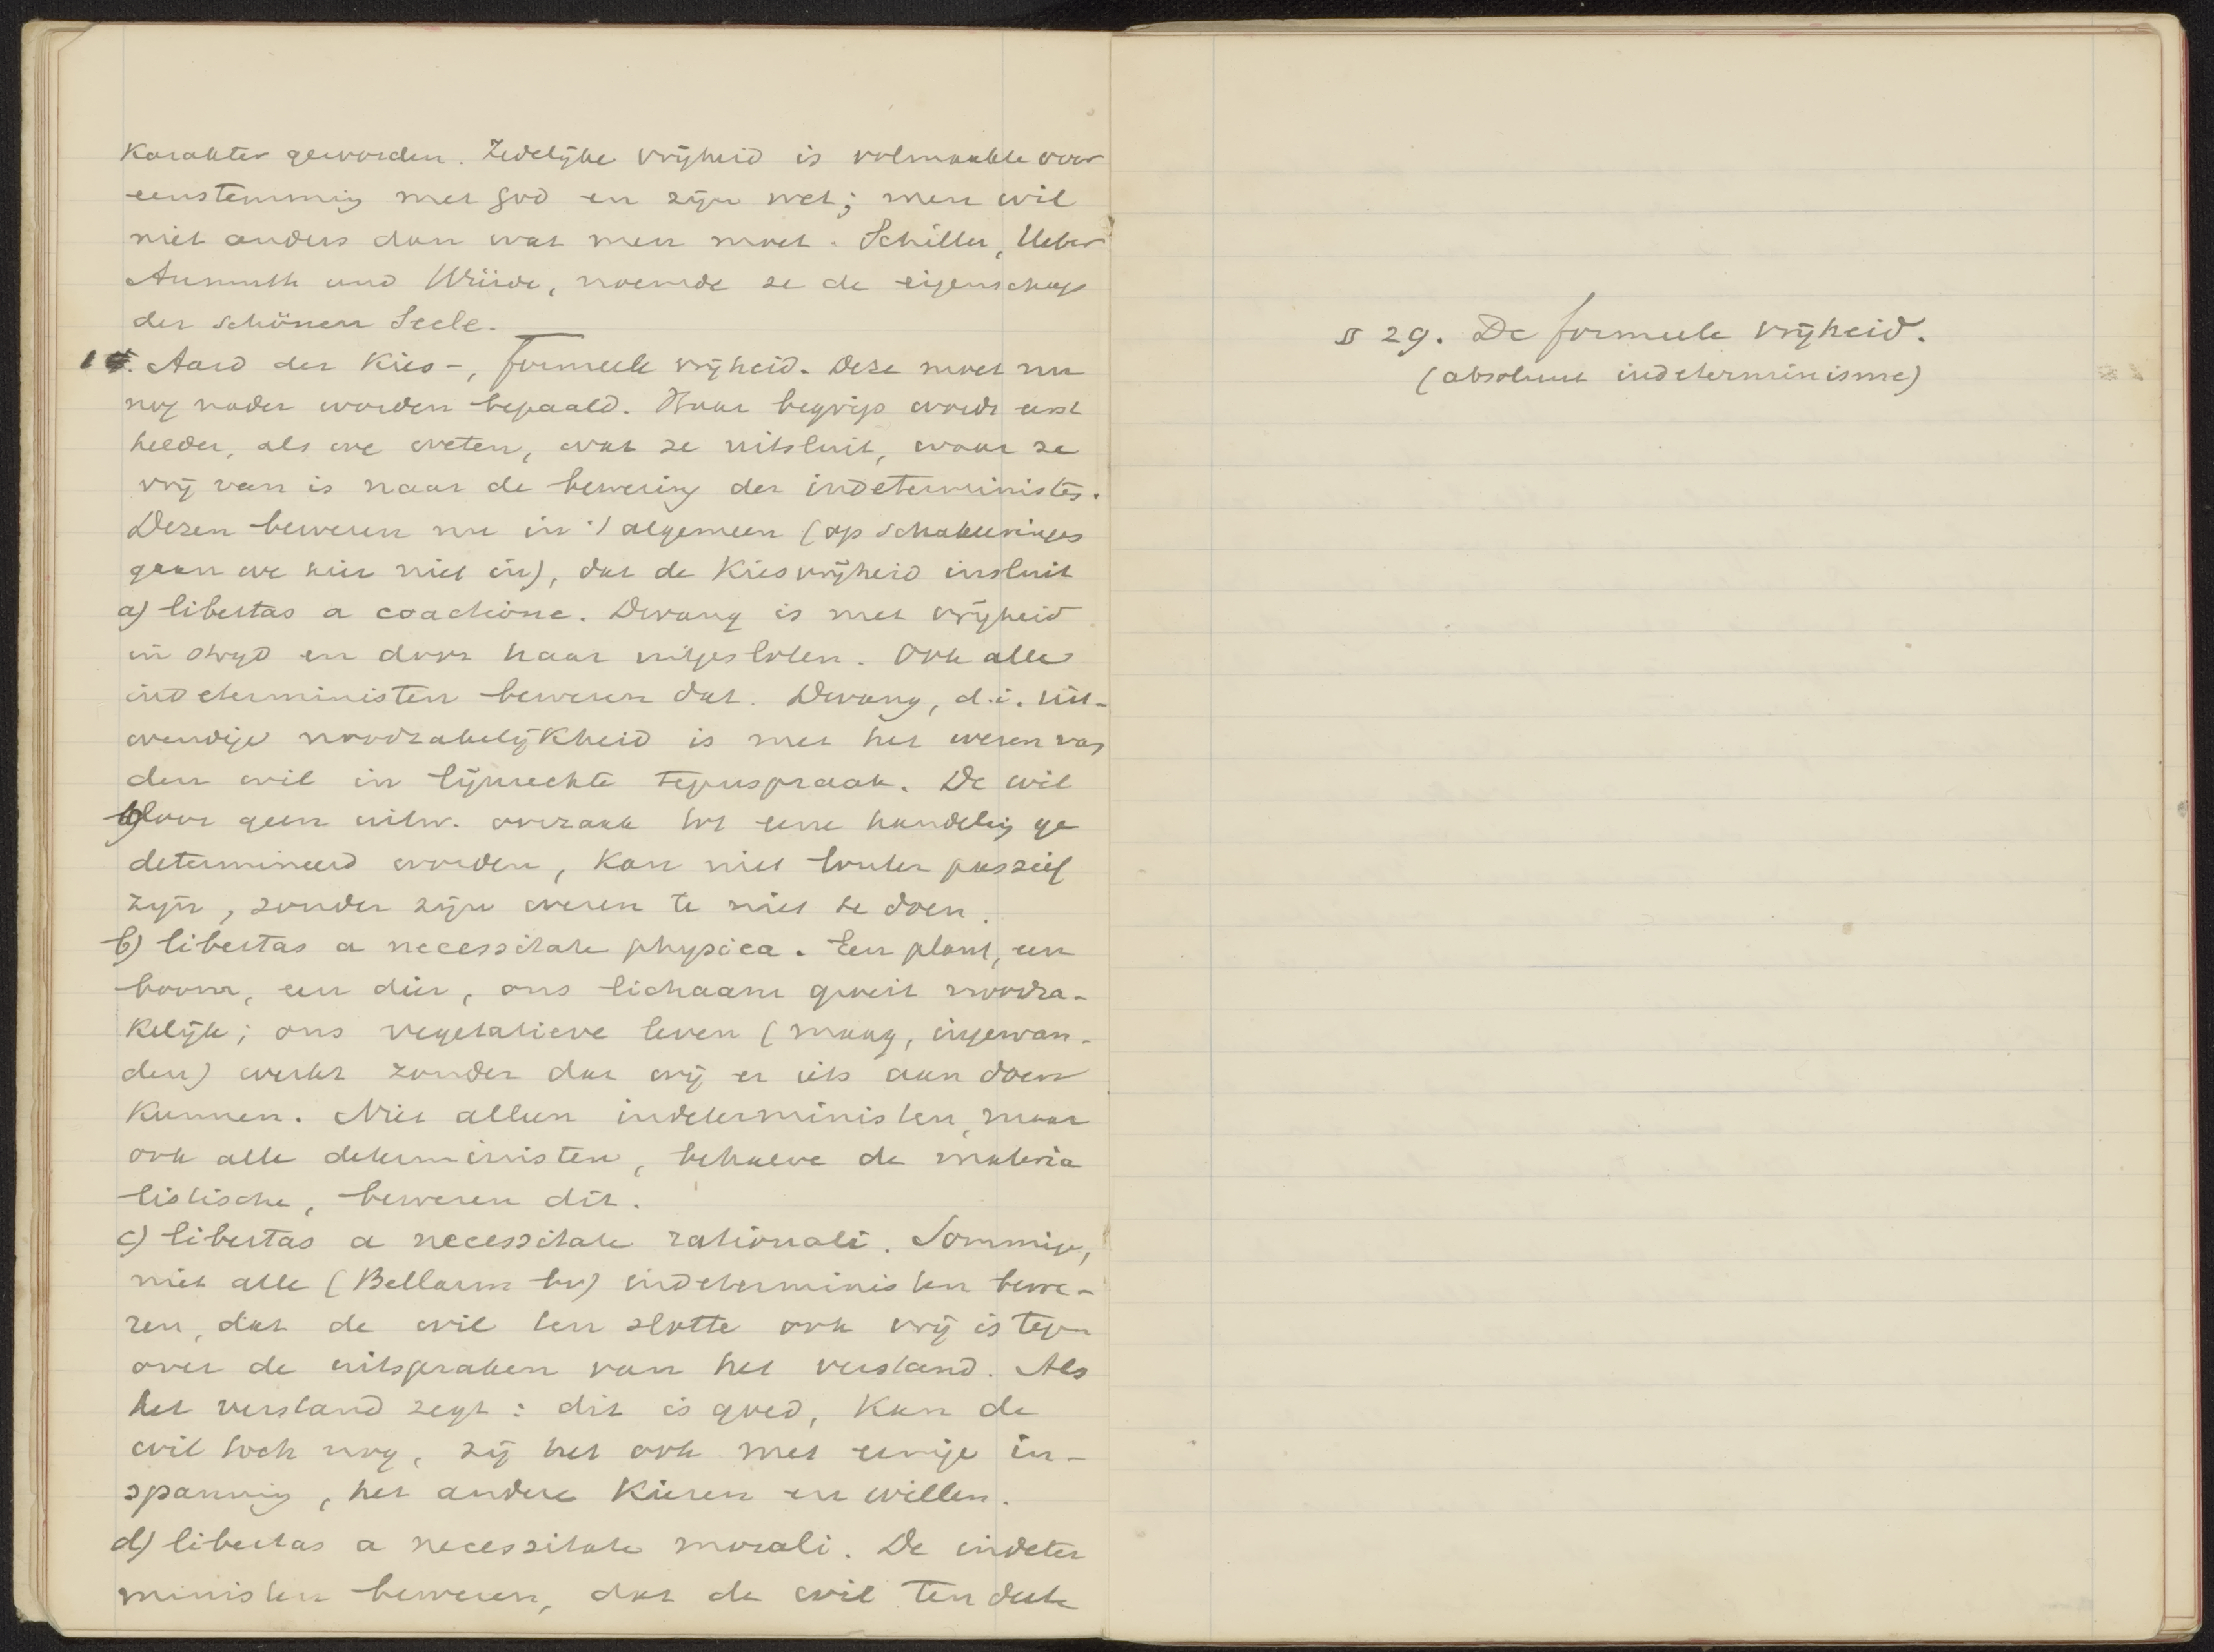 Karakter geworden. Zedelijke vrijheid is volmaakte over
eenstemmig met God en zijn wet; men wil
niet anders dan wat men moet. Schiller, Ueber
Anmuth und Würde, noemde ze de eigenschap
der schönen Seele.
1. Aard der Kies-, formeele vrijheid. Deze moet nu
nog nader worden bepaald. Haar begrip wordt eerst
helder, als we weten, wat ze uitsluit, waar ze
vrij van is naar de bewering der indeterministen.
Dezen beweren nu in 't algemeen (op schakeeringen
gaan we hier niet in), dat de Kiesvrijheid insluit
a) libertas a coactione. Dwang is met vrijheid
in strijd en door haar uitgesloten. Ook alle
indeterministen beweren dat. Dwang, d.i. uit-
wendige noodzakelijkheid is met het wezen van
den wil in lijnrechte tegenspraak. De wil
door geen uitw. oorzaak tot eene handeling ge
determineerd worden, kan niet louter passief
zijn, zonder zijn wezen te niet te doen.
b) libertas a necessitate physica. Een plant, een
boom, een dier, ons lichaam groeit noodza-
kelijk; ons vegetatieve leven (maag, ingewan-
den) werkt zonder dat wij er iets aan doen
kunnen. Niet alleen indeterministen, maar
ook alle deterministen, behalve de materia
listische, beweren dit.
c) libertas a necessitate rationali. Sommige,
niet alle (Bellarm bv) indeterministen bewe-
ren, dat de wil ten slotte ook vrij is tegen
over de uitspraken van het verstand. Als
het verstand zegt: dit is goed, kan de
wil toch nog, zij het ook met eenige in-
spanning, het andere kiezen en willen.
d) libertas a necessitate morali. De indeter
ministen beweren, dat de wil ten deele
§ 29. De formeele vrijheid.
(absoluut indeterminisme)